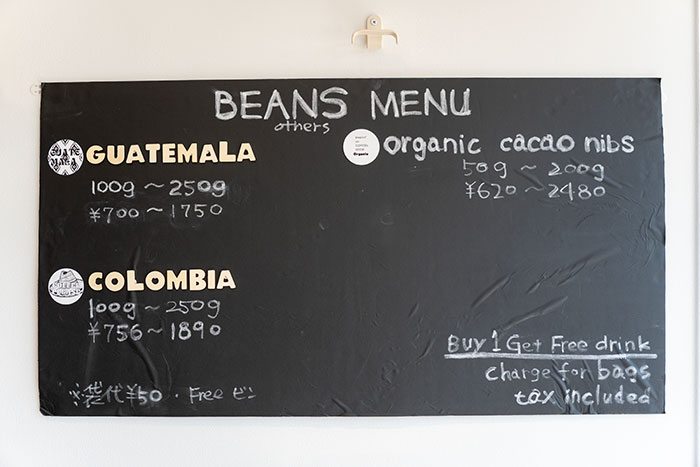 BEANS MENU
others
GUATE MALA
GUATEMALA
100g ~ 250g
¥700 ~ 1750
COLOMBIA
100g ~ 250g
¥756 ~ 1890
※袋代¥50 ・ Free ビン
Organic
Organic cacao nibs
50g ~ 200g
¥620 ~ 2480
Buy 1 Get Free drink
charge for bags
tax included